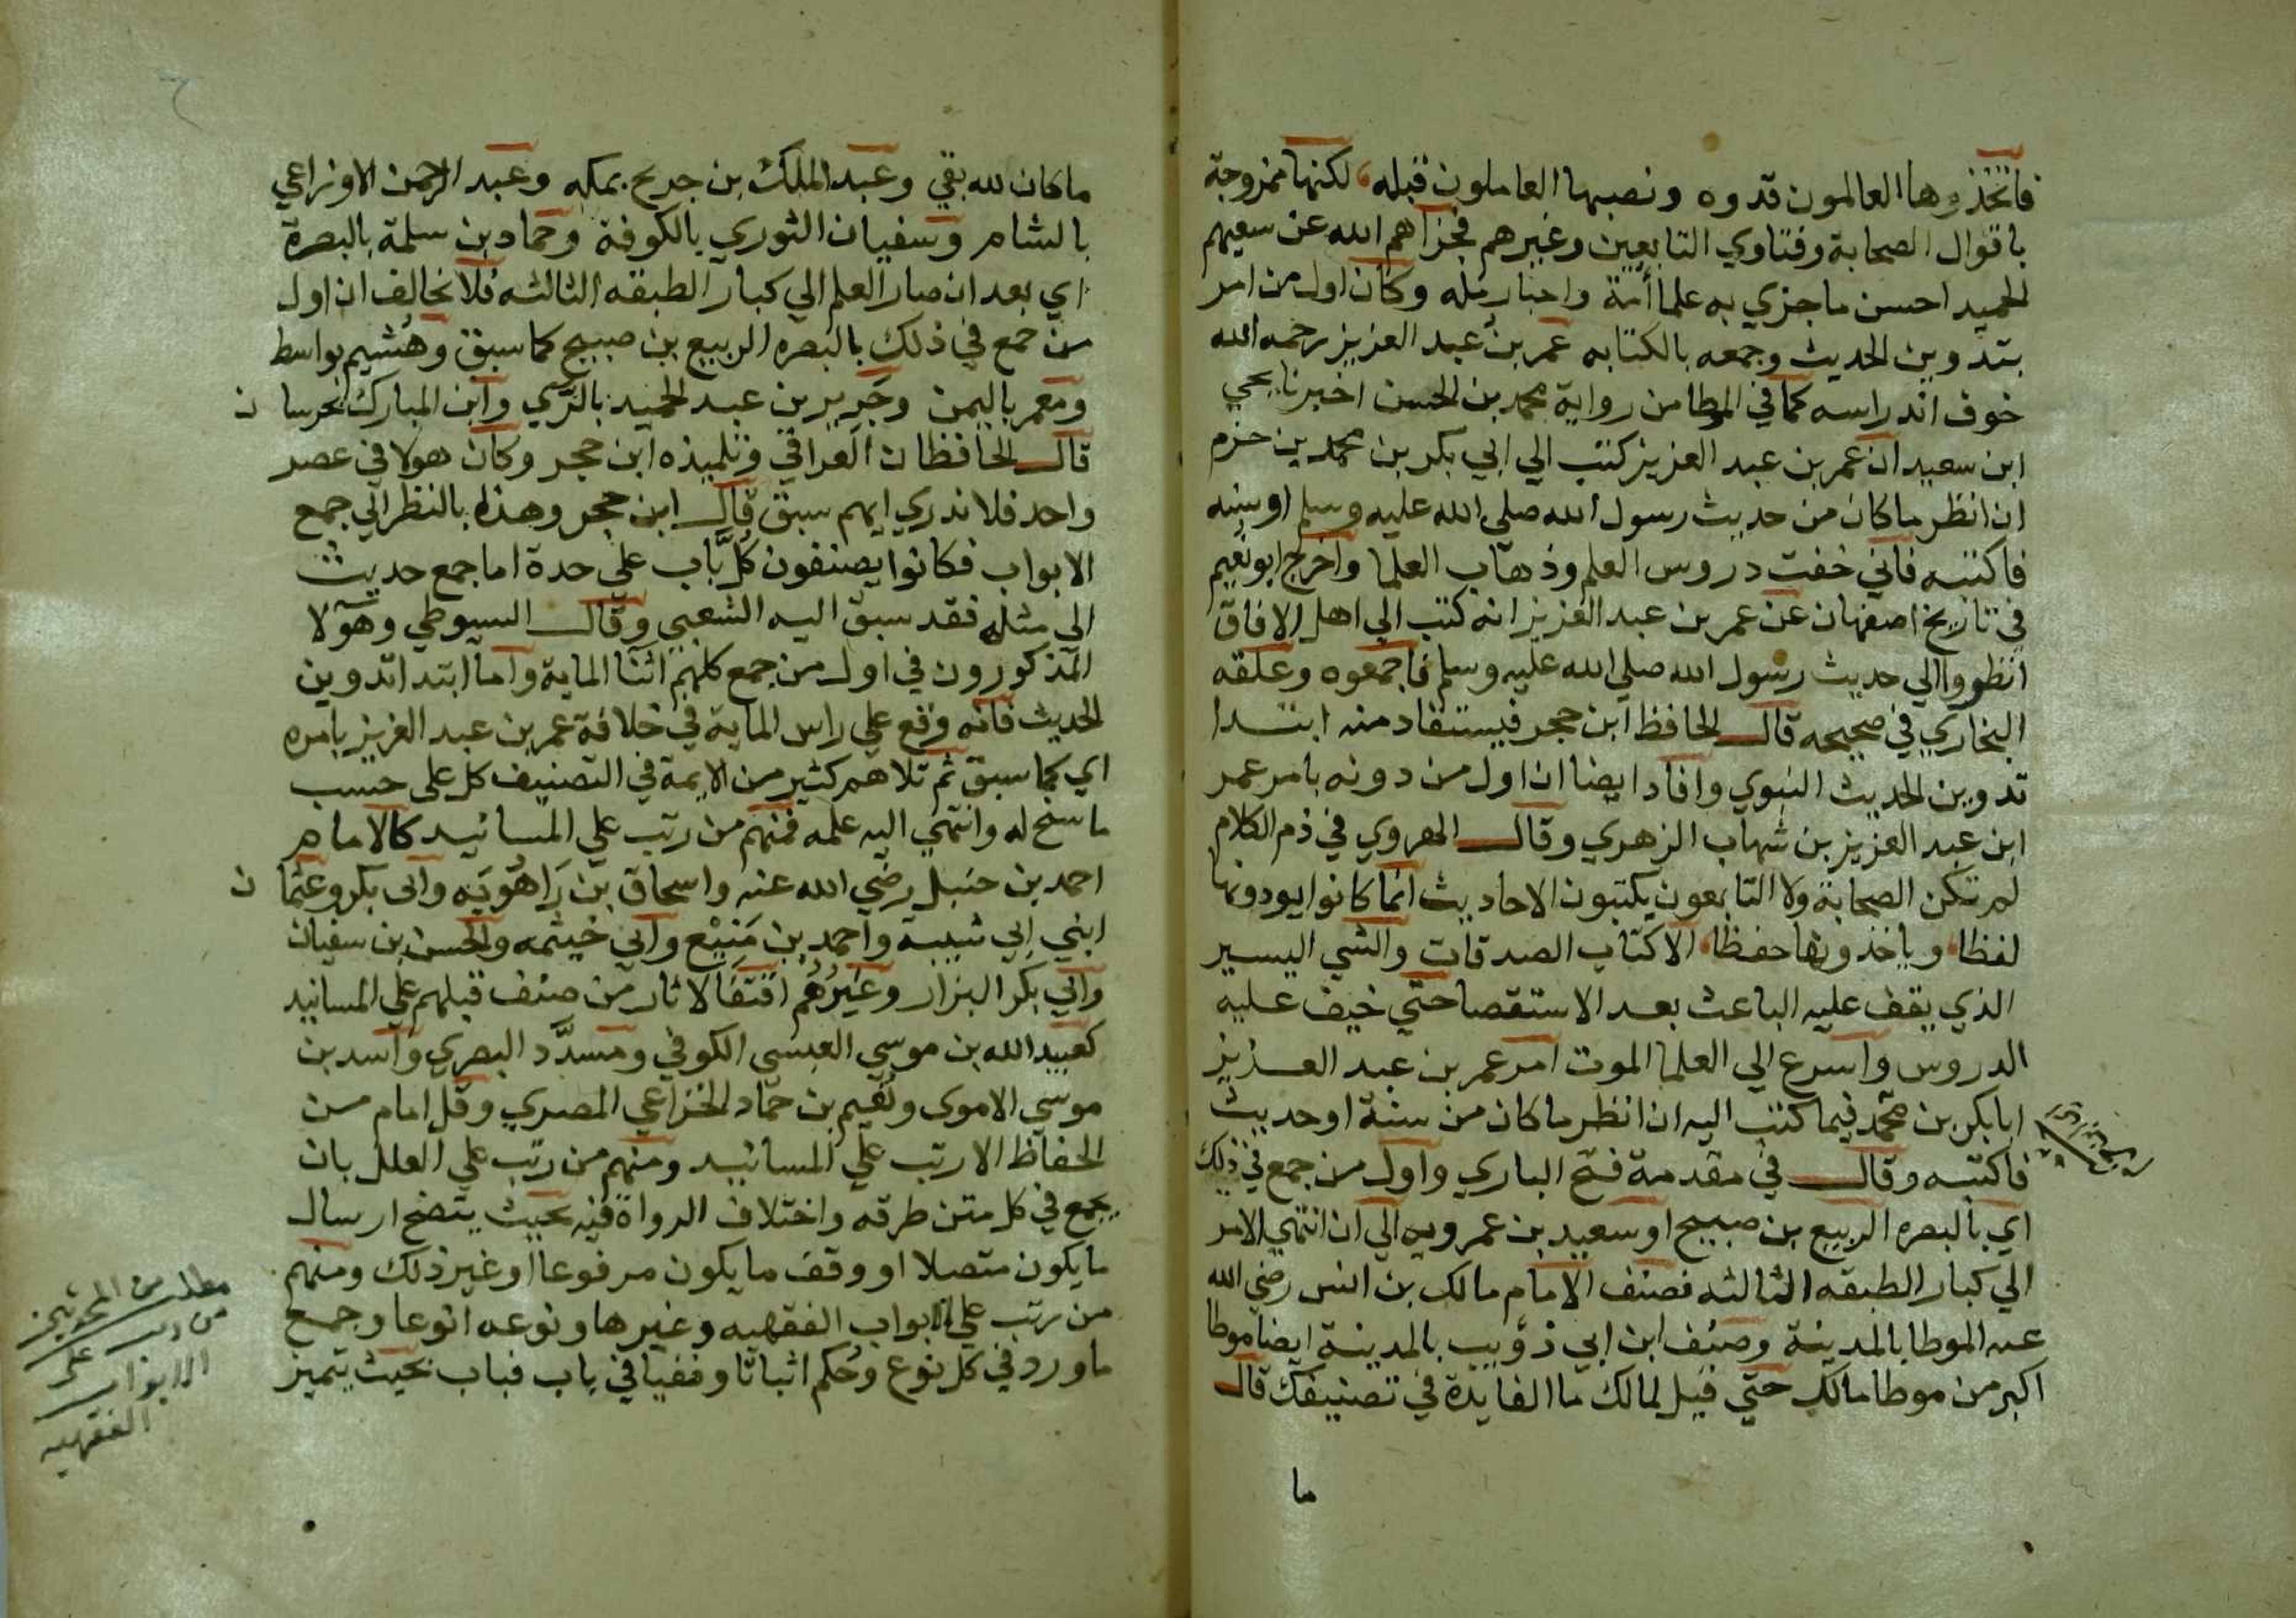 فاتخذوها العالمون قدوه ونصبها العاملون قبله، لكنها ممزوجة
باقوال الصحابة وفتاوي التابعين وغيرهم فجزاهم الله عن سعيهم
الحميد احسن ما جزي به علما أمة واحبار مله وكان اول من امر
بتدوين الحديث وجمعه بالكتابه عمر بن عبد العزيز رحمه الله
خوف اندراسه كما في الموطا من رواية محمد بن الحسن اخبرنا يحي
ابن سعيد ان عمر بن عبد العزيز كتب الي ابي بكر بن محمد بن حزم
ان انظر ما كان من حديث رسول الله صلي الله عليه وسلم او سنه
فاكتبه فاني خفت دروس العلم وذهاب العلما واخرج ابو نعيم
في تاريخ اصفهان عن عمر بن عبد العزيز انه كتب الي اهل الافاق
انظروا الي حديث رسول الله صلي الله عليه وسلم فاجمعوه وعلقه
البخاري في صحيحه قال الحافظ ابن حجر فيستفاد منه ابتدا
تدوين الحديث النبوي وافاد ايضا ان اول من دونه بامر عمر
ابن عبد العزيز بن شهاب الزهري وقال الهروي في ذم الكلام
لم تكن الصحابة ولا التابعون يكتبون الاحاديث انما كانوا يودونها
لفظا، وياخذونها حفظا، الا كتاب الصدقات والشي اليسير
الذي يقف عليه الباعث بعد الاستقصا حتي خيف عليه
الدروس واسرع الي العلما الموت امر عمر بن عبد العزيز
ابا بكر بن محمد فيما كتب اليه ان انظر ما كان من سنة او حديث
فاكتبه وقال في مقدمة فتح الباري واول من جمع في ذلك
اي بالبصره الربيع بن صبيح او سعيد بن عمرويه الي ان انتهي الامر
الي كبار الطبقه الثالثه فصنف الامام مالك بن انس رضي الله
عنه الموطا بالمدينة وصنف ابن ابي ذؤيب بالمدينة ايضا موطا
اكبر من موطا مالك حتي قيل لمالك ما الفايدة في تصنيفك قال
ما
ما كان لله بقي وعبد الملك بن جريح بمكه وعبد الرحمن الاوزاعي
بالشام وسفيان الثوري بالكوفة وحماد بن سلمة بالبصرة
اي بعد ان صار العلم الي كبار الطبقه الثالثه فلا نخالف ان اول
من جمع في ذلك بالبصره الربيع بن صبيح كما سبق وهشيم بواسط
ومعمر باليمن وجرير بن عبد الحميد بالري وابن المبارك بخرسان
قال الحافظان العراقي وتلميذه ابن حجر وكان هولا في عصر
واحد فلا ندري ايهم سبق قال ابن حجر وهذا بالنظر الي جمع
الابواب فكانوا يصنفون كل باب علي حدة اما جمع حديث
الي مثله فقد سبق اليه الشعبي وقال السيوطي وهولا
المذكورون في اول من جمع كلهم اثنا الماية واما ابتدا تدوين
الحديث فانه وقع علي راس الماية في خلافة عمر بن عبد العزيز بامره
اي كما سبق ثم تلاهم كثير من الايمة في التصنيف كل على حسب
ما سنح له وانتهي اليه علمه فمنهم من رتب علي المسانيد كالامام
احمد بن حنبل رضي الله عنه واسحاق بن راهويه وابى بكر وعثمان
ابني ابي شيبة واحمد بن منيع وابي خيثمه والحسن بن سفيان
وابي بكر البزار وغيرهم اقتفا لاثار من صنف قبلهم علي المسانيد
كعبيد الله بن موسي العبسى الكوفي ومسدد البصري واسد بن
موسي الاموى ونعيم بن حماد الخزاعي المصري وقل امام من
الحفاظ الا رتب علي المسانيد ومنهم من رتب علي العلل بان
يجمع في كل متن طرقه واختلاف الرواة فيه بحيث يتضح ارسال
ما يكون متصلا او وقف ما يكون مرفوعا او غير ذلك ومنهم
من رتب علي الابواب الفقهيه وغيرها ونوعه انوعا وجمع
ما ورد في كل نوع وحكم اثباتا ونفيا في باب فباب بحيث يتميز
من رتب على
الابواب
الفقهيه